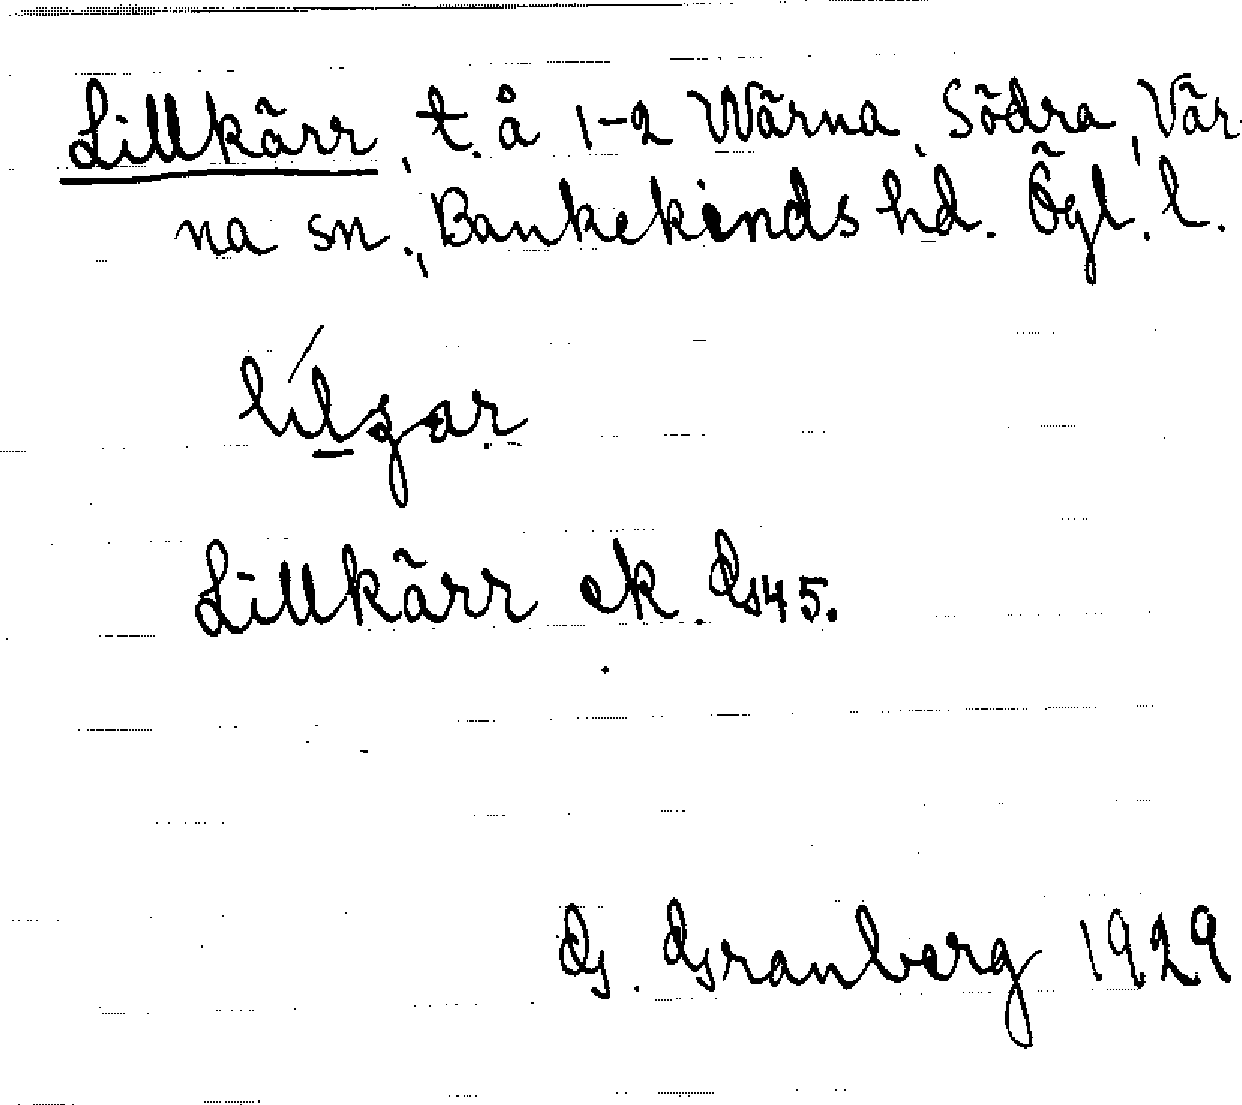 Lillkärr, t. å 1-2 Wärna, Södra, Vär-
na sn., Bankekinds hd. Ögl. l.
Lillkärr ek. G45.
G. Granberg 1929